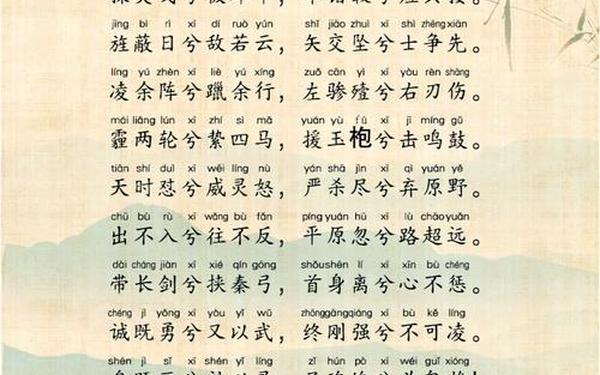 jīng bì rì xī dí ruò yún shǐ jiāo zhuì xī shì zhēng xiān
旌蔽日兮敌若云，矢交坠兮士争先。
líng yú zhèn xī liè yú xíng zuǒ cān yì xī yòu rèn shāng
凌余阵兮躐余行，左骖殪兮右刃伤。
mái liǎng lún xī zhí sì mǎ yuán yù fú xī jī míng gǔ
霾两轮兮絷四马，援玉枹兮击鸣鼓。
tiān shí duì xī wēi líng nù yán shā jìn xī qì yuán yě
天时怼兮威灵怒，严杀尽兮弃原野。
chū bù rù xī wǎng bù fǎn píng yuán hū xī lù chāo yuǎn
出不入兮往不反，平原忽兮路超远。
dài cháng jiàn xī xié qín gōng shǒu shēn lí xī xīn bù chéng
带长剑兮挟秦弓，首身离兮心不惩。
chéng jì yǒng xī yòu yǐ wǔ zhōng gāng qiáng xī bù kě líng
诚既勇兮又以武，终刚强兮不可凌。
shēn jì sǐ xī shén yǐ líng zǐ hún pò xī wéi guǐ xióng